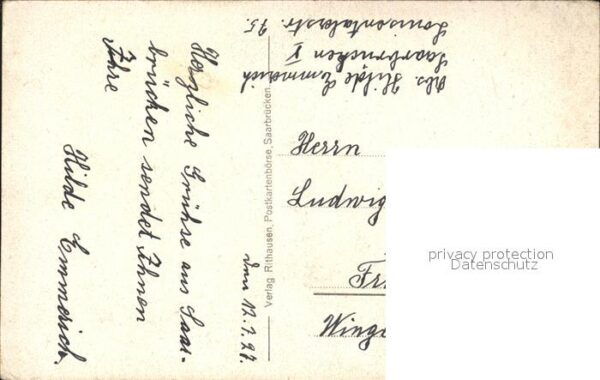 Herzliche Grühse aus Saar-
brücken sendet Ihnen
Ihre
Hilde Emmerich.
den 12.7.27.
Verlag Rithausen, Postkartenbörse, Saarbrücken.
Abs. Hilde Emmerich
Saarbrücken V
Louisentalerstr. 75.
Herrn
Ludwig
Fr
Winge
privacy protection
Datenschutz